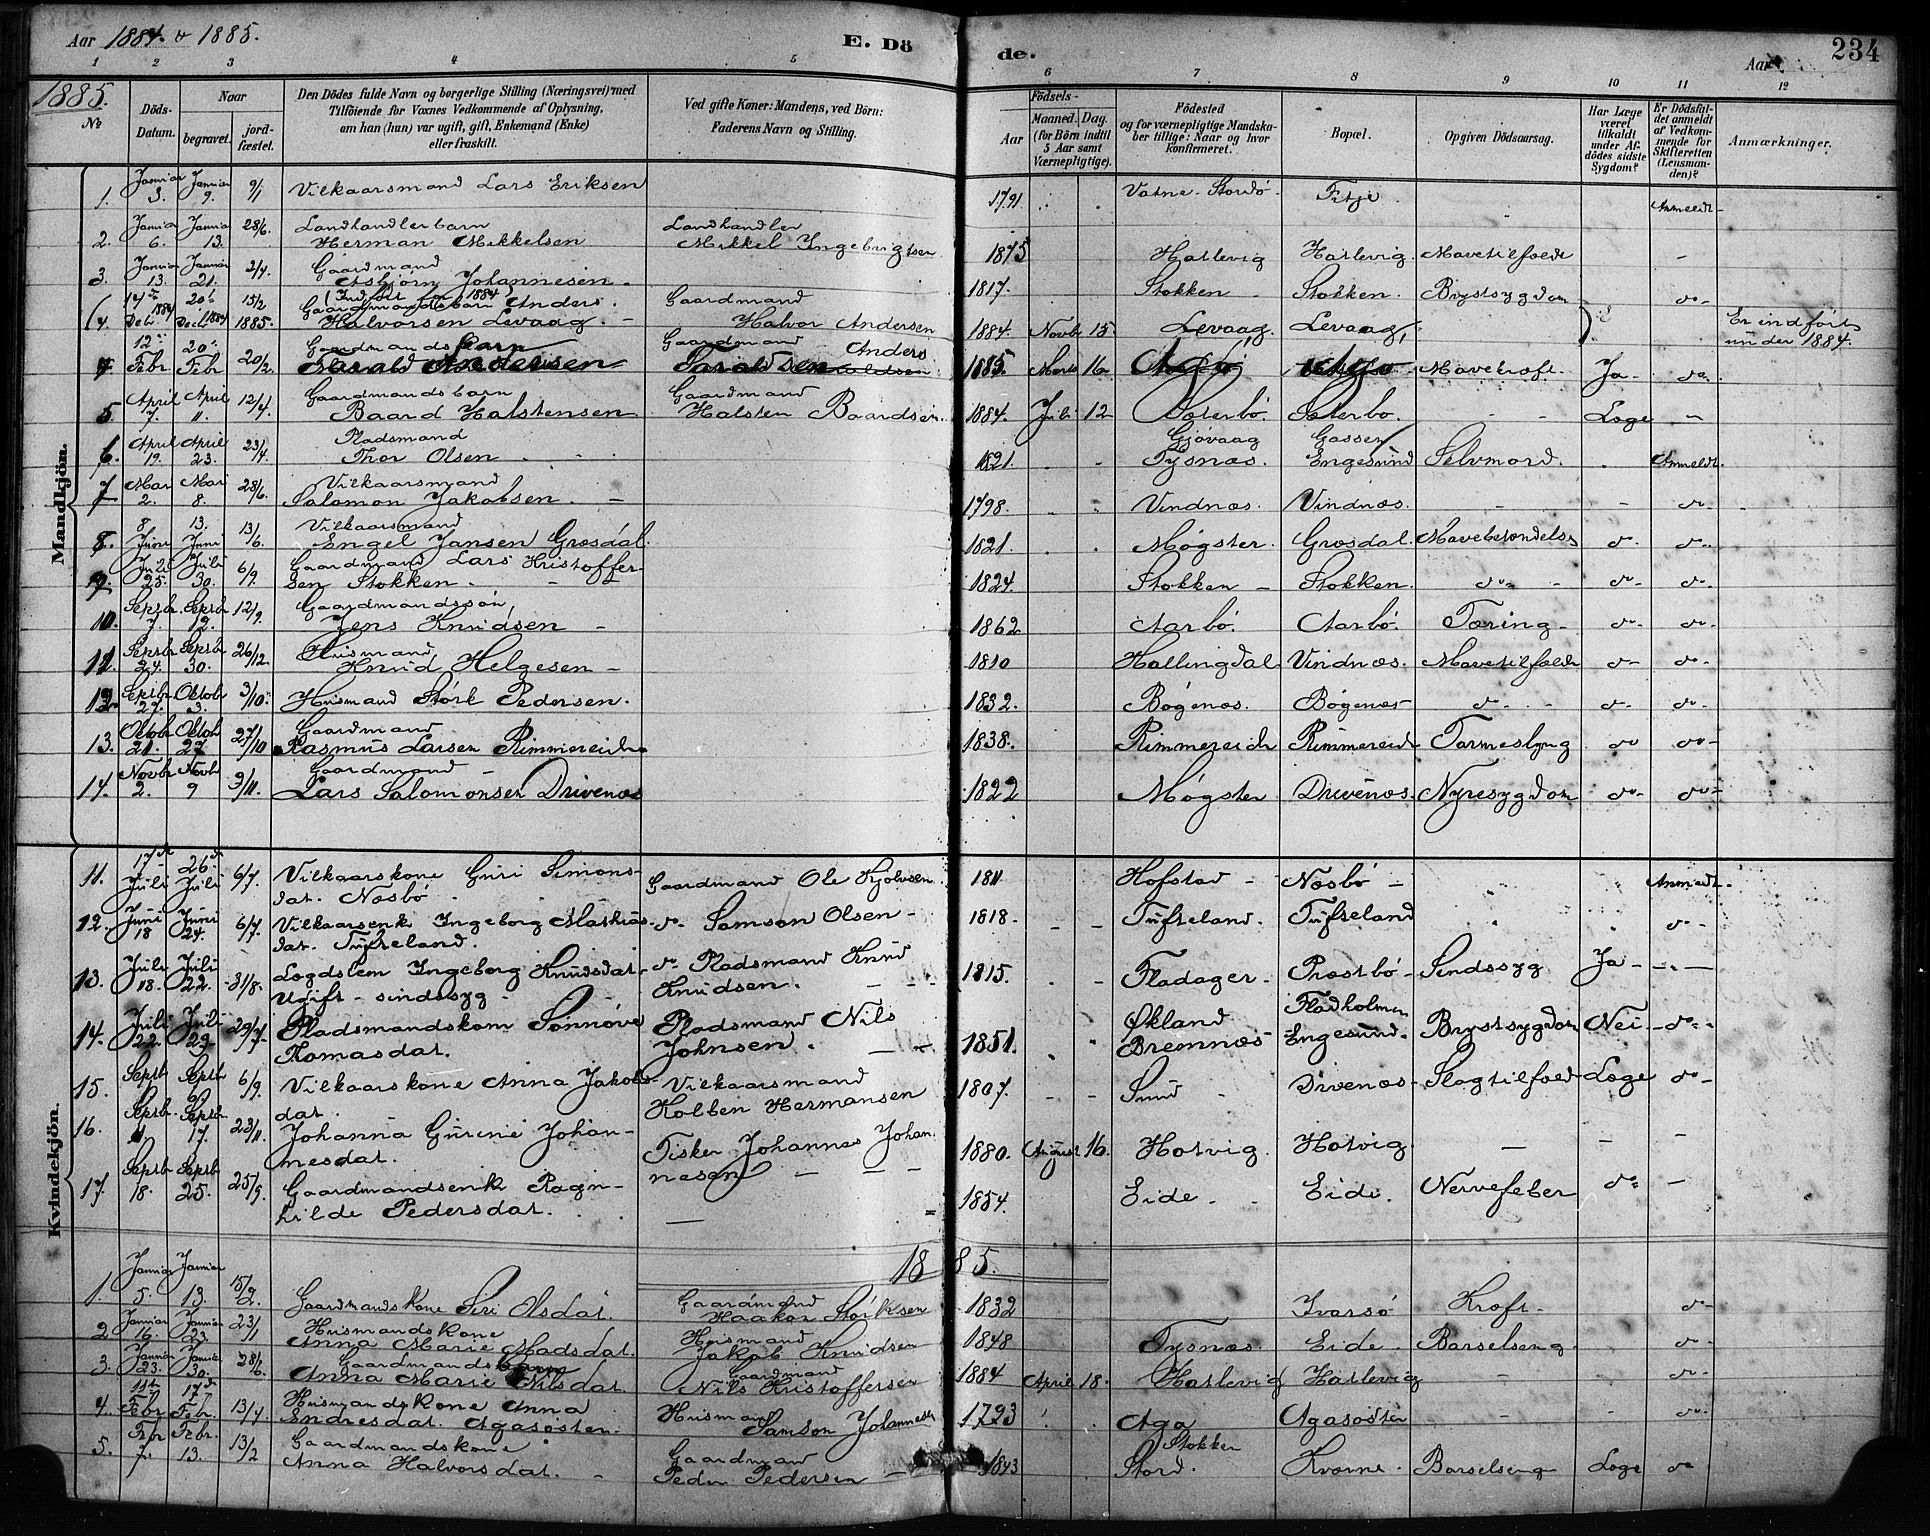 Aar 1884. & 1885.
E. Dö
de.
Aar
234
1 2 3 4 5 6 7 8 9 10 11 12
1885.
No
Döds-Datum.
Naar
begravet.
jord-fæstet.
Den Dödes fulde Navn og borgerlige Stilling (Næringsvei) med
Tilföiende for Voxnes Vedkommende af Oplysning,
om han (hun) var ugift, gift, Enkemand (Enke)
eller fraskilt.
Ved gifte Koner: Mandens, ved Börn:
Faderens Navn og Stilling.
Födsels-
Aar
Maaned. Dag.
(for Börn indtil
5 Aar samt
Værnepligtige).
Födested
og for værnepligtige Mandska-
ber tillige: Naar og hvor
konfirmeret.
Bopæl.
Opgiven Dödsaarsag.
Har Læge
været
tilkaldt
under Af-
dödes sidste
Sygdom?
Er Dödsfal-
det anmeldt
af Vedkom-
mende for
Skifteretten
(Lensman-
den)?
Anmærkninger.
Mandkjön.
1. Januar 3. Januar 9. 9/1 Vilkaarsmand Lars Eriksen 1791 Vatne. Stordö. Fitje. Anmeldt
2. Januar 6. Januar 13. 28/6. Landhandlerbarn
Herman Mikkelsen Landhandler
Mikkel Ingebrigtsen 1875 Hatlevig Hatlevig. Mavetilfælde -
3. Januar 13. Januar 21. 2/4. Gaardmand
Asbjörn Johannesen 1817. Stokken Stokken. Brystsygdom do
(Indfört for 1884
(4. 14de Debr. 1884 20de Decbr. 1884 15/2 1885. Gaardmandsbarn Anders
Halvorsen Levaag. Gaardmand
Halvor Andersen 1884. Novbr 15. Levaag. Levaag, Er indfört
under 1884.
4. 12te Febr 20de Febr 20/2. Gaardmandsbarn
Andersen Gaardmand Anders
Taraldsen 1885. Marts 16 Mavekræft. Ja do
5. April 7. April 11. 12/4. Gaardmandsbarn
Baard Halstensen Gaardmand
Halsten Baardsen. 1884. Juli 12 Sæterbö. Sæterbö. - - Læge -
6. April 19. April 23. 23/4. Pladsmand
Thor Olsen 1821. Gjövaag
Tysnæs. Gassen
Engesund Selvmord. Anmeldt.
7 Mai 2. Mai 8. 28/6. Vilkaarsmand
Salomon Jakobsen. 1798. Vindnæs. Vindnæs. - do
8. 8 Juni 13. Juni 13/6. Vilkaarsmand
Engel Jansen Græsdal. 1821. Møgster. Græsdal. Mavebetændelse do do
9. Juli 25. Juli 30. 6/9. Gaardmand Lars Kristoffer-
sen Stokken. 1824. Stokken Stokken. do do do
10. Septbr 7. Septbr 12. 12/9. Gaardmandssön
Jens Knudsen 1862 Aarbö. Aarbö. Tæring do do
11. Septbr 24. Septbr 30. 26/12. Husmand
Knud Helgesen 1810 Hallingdal Vindnæs. Mavetilfælde do do
12. Septbr 27. Oktobr 3. 3/10. Husmand Störk Pedersen. 1832. Bøgenæs. Bøgenæs do do do
13. Oktobr 21. Oktob 27 27/10 Gaardmand
Rasmus Larsen Rimmereide 1838. Rimmereide Rimmereide Tarmeslyng do do
14. Novbr 2. Novbr 9 9/11. Gaardmand
Lars Salomonsen Drivenæs 1822 Møgster Drivenæs. Nyresygdom do do
Kvindekjön.
11. 17de Juli 26de Juli 6/7. Vilkaarskone Guri Simons-
dat. Næsbö. Gaardmand Ole Kjolvsen 1811 Hofstad Næsbö Anmeldt.
12. Juni 18 Juni 24. 6/7. Vilkaarsenke Ingeborg Mathias-
dat. Tufteland. do Samson Olsen 1818. Tufteland. Tufteland do
13. Juli 18. Juli 22. 31/8. Lægdslem Ingeborg Knudsdat
Ugift - sindssyg do Pladsmand Knud
Knudsen. 1815. Fladager. Præstbö Sindssyg Ja
14. Juli 22 Juli 29 29/7 Pladsmandskone Sönnöve
Tomasdat. Pladsmand Nils
Johnsen. 1851. Økland
Bremnæs Fladholmen
Engesund. Brystsygdom Nei do
15. Septb Septbr 6/9. Vilkaarskone Anna Jakobs-
dat. Vilkaarsmand
Kolben Hermansen 1807. Sund Drivenæs Slagtilfælde Læge do
16. Septbr. 11 Septbr. 17. 23/11. Johanna Gurine Johan-
nesdat. Fisker Johannes Johan-
nesen 1880. August 16. Hotvig. Hotvig. - - -
17. Septbr 18. Septbr 25. 25/9. Gaardmandsenke Ragn-
hilde Pedersdat. 1854. Eide. Eide. Nervefeber do -
1885.
1. Januar 5. Januar 13. 15/2. Gaardmandskone Siri Olsdat. Gaardmand
Haakon Störksen 1832 Ivarsö Kræft. do
2 Januar 16. Januar 23. 23/1 Husmandskone
Anna Marie Madsdat. Husmand
Jakob Knudsen 1848 Tysnæs. Eide. Barselseng. do
3. Januar 23. Januar 30. 28/6. Gaardmandsbarn
Anna Marie Nilsdat. Gaardmand
Nils Kristoffersen 1884 April 18. Hatlevig Hatlevig do
4. 11te Febr 17de Febr. 13/4 Husmandskone Anna
Endresdat. Agasøsten. Husmand
Samson Johannesen 1793 Aga Agasøsten do
5. Febr. 7. Febr. 13. 13/2 Gaardmandskone
Anna Halvorsdat. Gaardmand
Peder Pedersen 1843 Stokken
Stord. Kværne. Barselseng Læge do